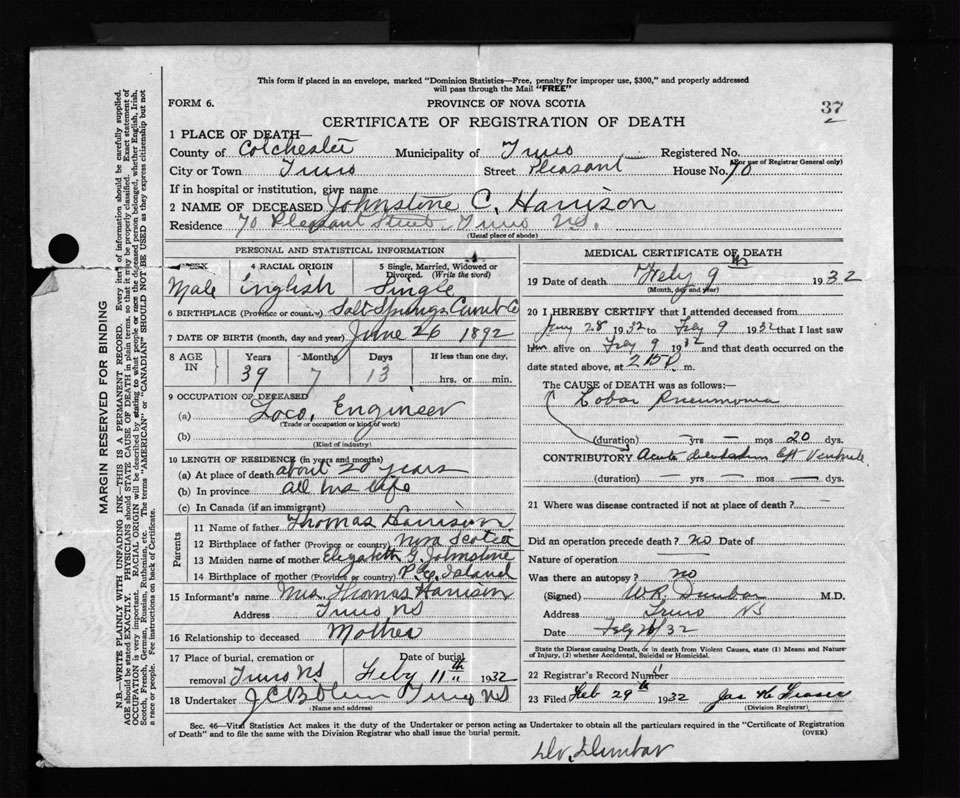 This form if placed in an envelope, marked "Dominion Statistics—Free, penalty for improper use, $300," and properly addressed
will pass through the Mail "FREE"
FORM 6.
PROVINCE OF NOVA SCOTIA
37
CERTIFICATE OF REGISTRATION OF DEATH
1 PLACE OF DEATH—
County of Colchester Municipality of Truro Registered No.
(For use of Registrar General only)
City or Town Truro Street Pleasant House No. 70
If in hospital or institution, give name
2 NAME OF DECEASED Johnstone C. Harrison
Residence 70 Pleasant Street Truro N.S.
(Usual place of abode)
PERSONAL AND STATISTICAL INFORMATION
4 RACIAL ORIGIN 5 Single, Married, Widowed or Divorced. (Write the word)
Male English Single
6 BIRTHPLACE (Province or country) Salt Springs Cumb Co
7 DATE OF BIRTH (month, day and year) June 26 1892
8 AGE IN Years Months Days If less than one day,
39 7 13 hrs. or min.
9 OCCUPATION OF DECEASED
(a) Loco. Engineer
(Trade or occupation or kind of work)
(b)
(Kind of industry)
10 LENGTH OF RESIDENCE (in years and months)
(a) At place of death about 20 years
(b) In province all his life
(c) In Canada (if an immigrant)
Parents
11 Name of father Thomas Harrison
12 Birthplace of father (Province or country) Nova Scotia
13 Maiden name of mother Elizabeth G. Johnstone
14 Birthplace of mother (Province or country) P.E. Island
15 Informant's name Mrs. Thomas Harrison
Address Truro NS
16 Relationship to deceased Mother
17 Place of burial, cremation or removal Date of burial
Truro NS Feby 11th 1932
18 Undertaker Truro NS
(Name and address)
MEDICAL CERTIFICATE OF DEATH
19 Date of death Feby 9th 1932
(Month, day and year)
20 I HEREBY CERTIFY that I attended deceased from
Jany 28 1932 to Feby 9 1932 that I last saw
him alive on Feby 9 1932 and that death occurred on
date stated above, at m.
The CAUSE of DEATH was as follows:—
Lobar Pneumonia
(duration) — yrs — mos 20 dys.
CONTRIBUTORY Acute dilatation left Ventricle
(duration) — yrs — mos — dys.
21 Where was disease contracted if not at place of death? —
Did an operation precede death? no Date of
Nature of operation —
Was there an autopsy? no
(Signed) W.R. Dunbar M.D.
Address Truro NS
Date /32
State the Disease causing Death, or in death from Violent Causes, state (1) Means and Nature
of Injury, (2) whether Accidental, Suicidal or Homicidal.
22 Registrar's Record Number
23 Filed Feb 29th 1932 Jas H Fraser
(Division Registrar)
Sec. 46—Vital Statistics Act makes it the duty of the Undertaker or person acting as Undertaker to obtain all the particulars required in the "Certificate of Registration
of Death" and to file the same with the Division Registrar who shall issue the burial permit. (OVER)
Dr. Dunbar
MARGIN RESERVED FOR BINDING
N.B.—WRITE PLAINLY WITH UNFADING INK—THIS IS A PERMANENT RECORD. Every item of information should be carefully supplied.
AGE should be stated EXACTLY. PHYSICIANS should STATE CAUSE OF DEATH in plain terms, so that it may be properly classified. Exact statement of
OCCUPATION is very important. RACIAL ORIGIN will be described by stating to what people or race the deceased person belonged, whether English, Irish,
Scotch, French, German, Russian, Ruthenian, etc. The terms "AMERICAN" or "CANADIAN" SHOULD NOT BE USED as they express citizenship but not
a race or people. See instructions on back of Certificate.